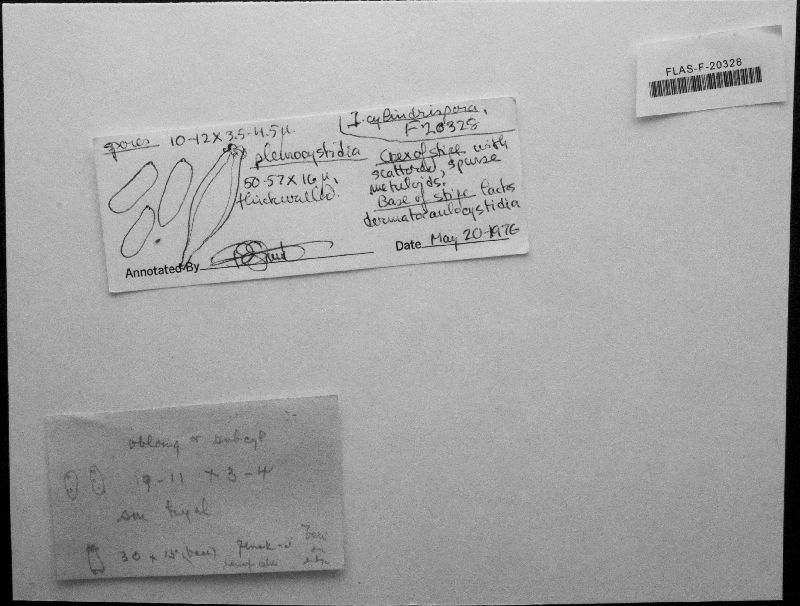 FLAS-F-20328
spores 10-12 x 3.5-4.5 µ.
I. cylindrispora,
F20328
pleurocystidia
50-57 x 16 µ,
thickwalled.
Apex of stipe with
scattered, sparse
metuloids.
Base of stipe lacks
dermatocaulocystidia
Annotated By
Date May 20-1976
oblong or subcyl
9-11 x 3-4
30 x 15 (base)